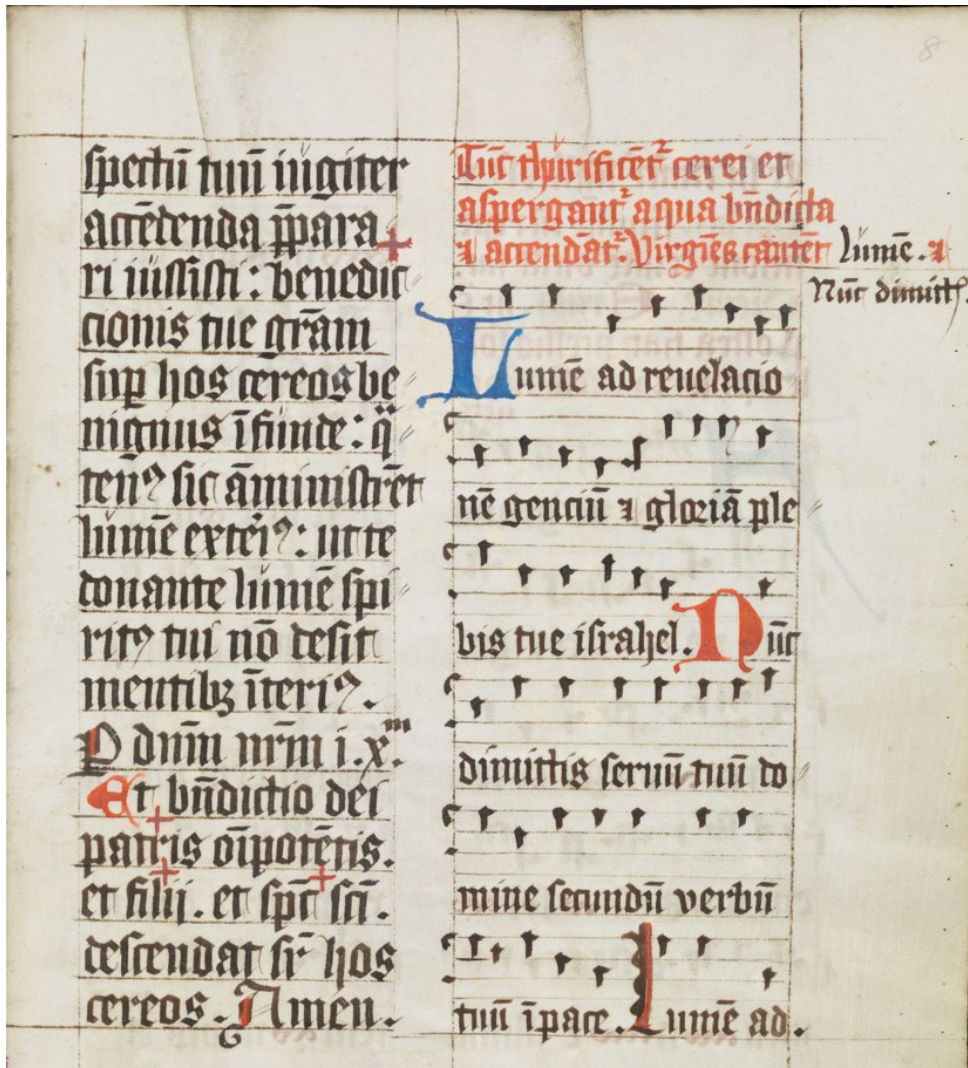 spectū tuū iugiter
accēdenda p̄para
ri iussisti: benedic
cionis tue grām
suꝑ hos cereos be
nignus īfunde: q̄
tenꝰ sic āministrēt
lumē exteriꝰ: ut te
donante lumē spi
ritꝰ tui nō desit
mentibꝫ īteriꝰ.
P dnm̄ nrm̄ i. xᵐ.
Et bn̄dictio dei
patris oīpotētis.
et filij. et spc̄ scī.
descendat sr̄ hos
cereos. Amen.
Tūc thurificēt᷑ cerei et
aspergant᷑ aqua bn̄dicta
⁊ accendāt᷑. Virgīes cantēt lumē. ⁊
Nūc dimitt᷑.
Lumē ad reuelacio
nē genciū ⁊ gloriā ple
bis tue israhel. Nūc
dimittis seruū tuū do
mine secundū verbū
tuū ī pace. Lumē ad.
8